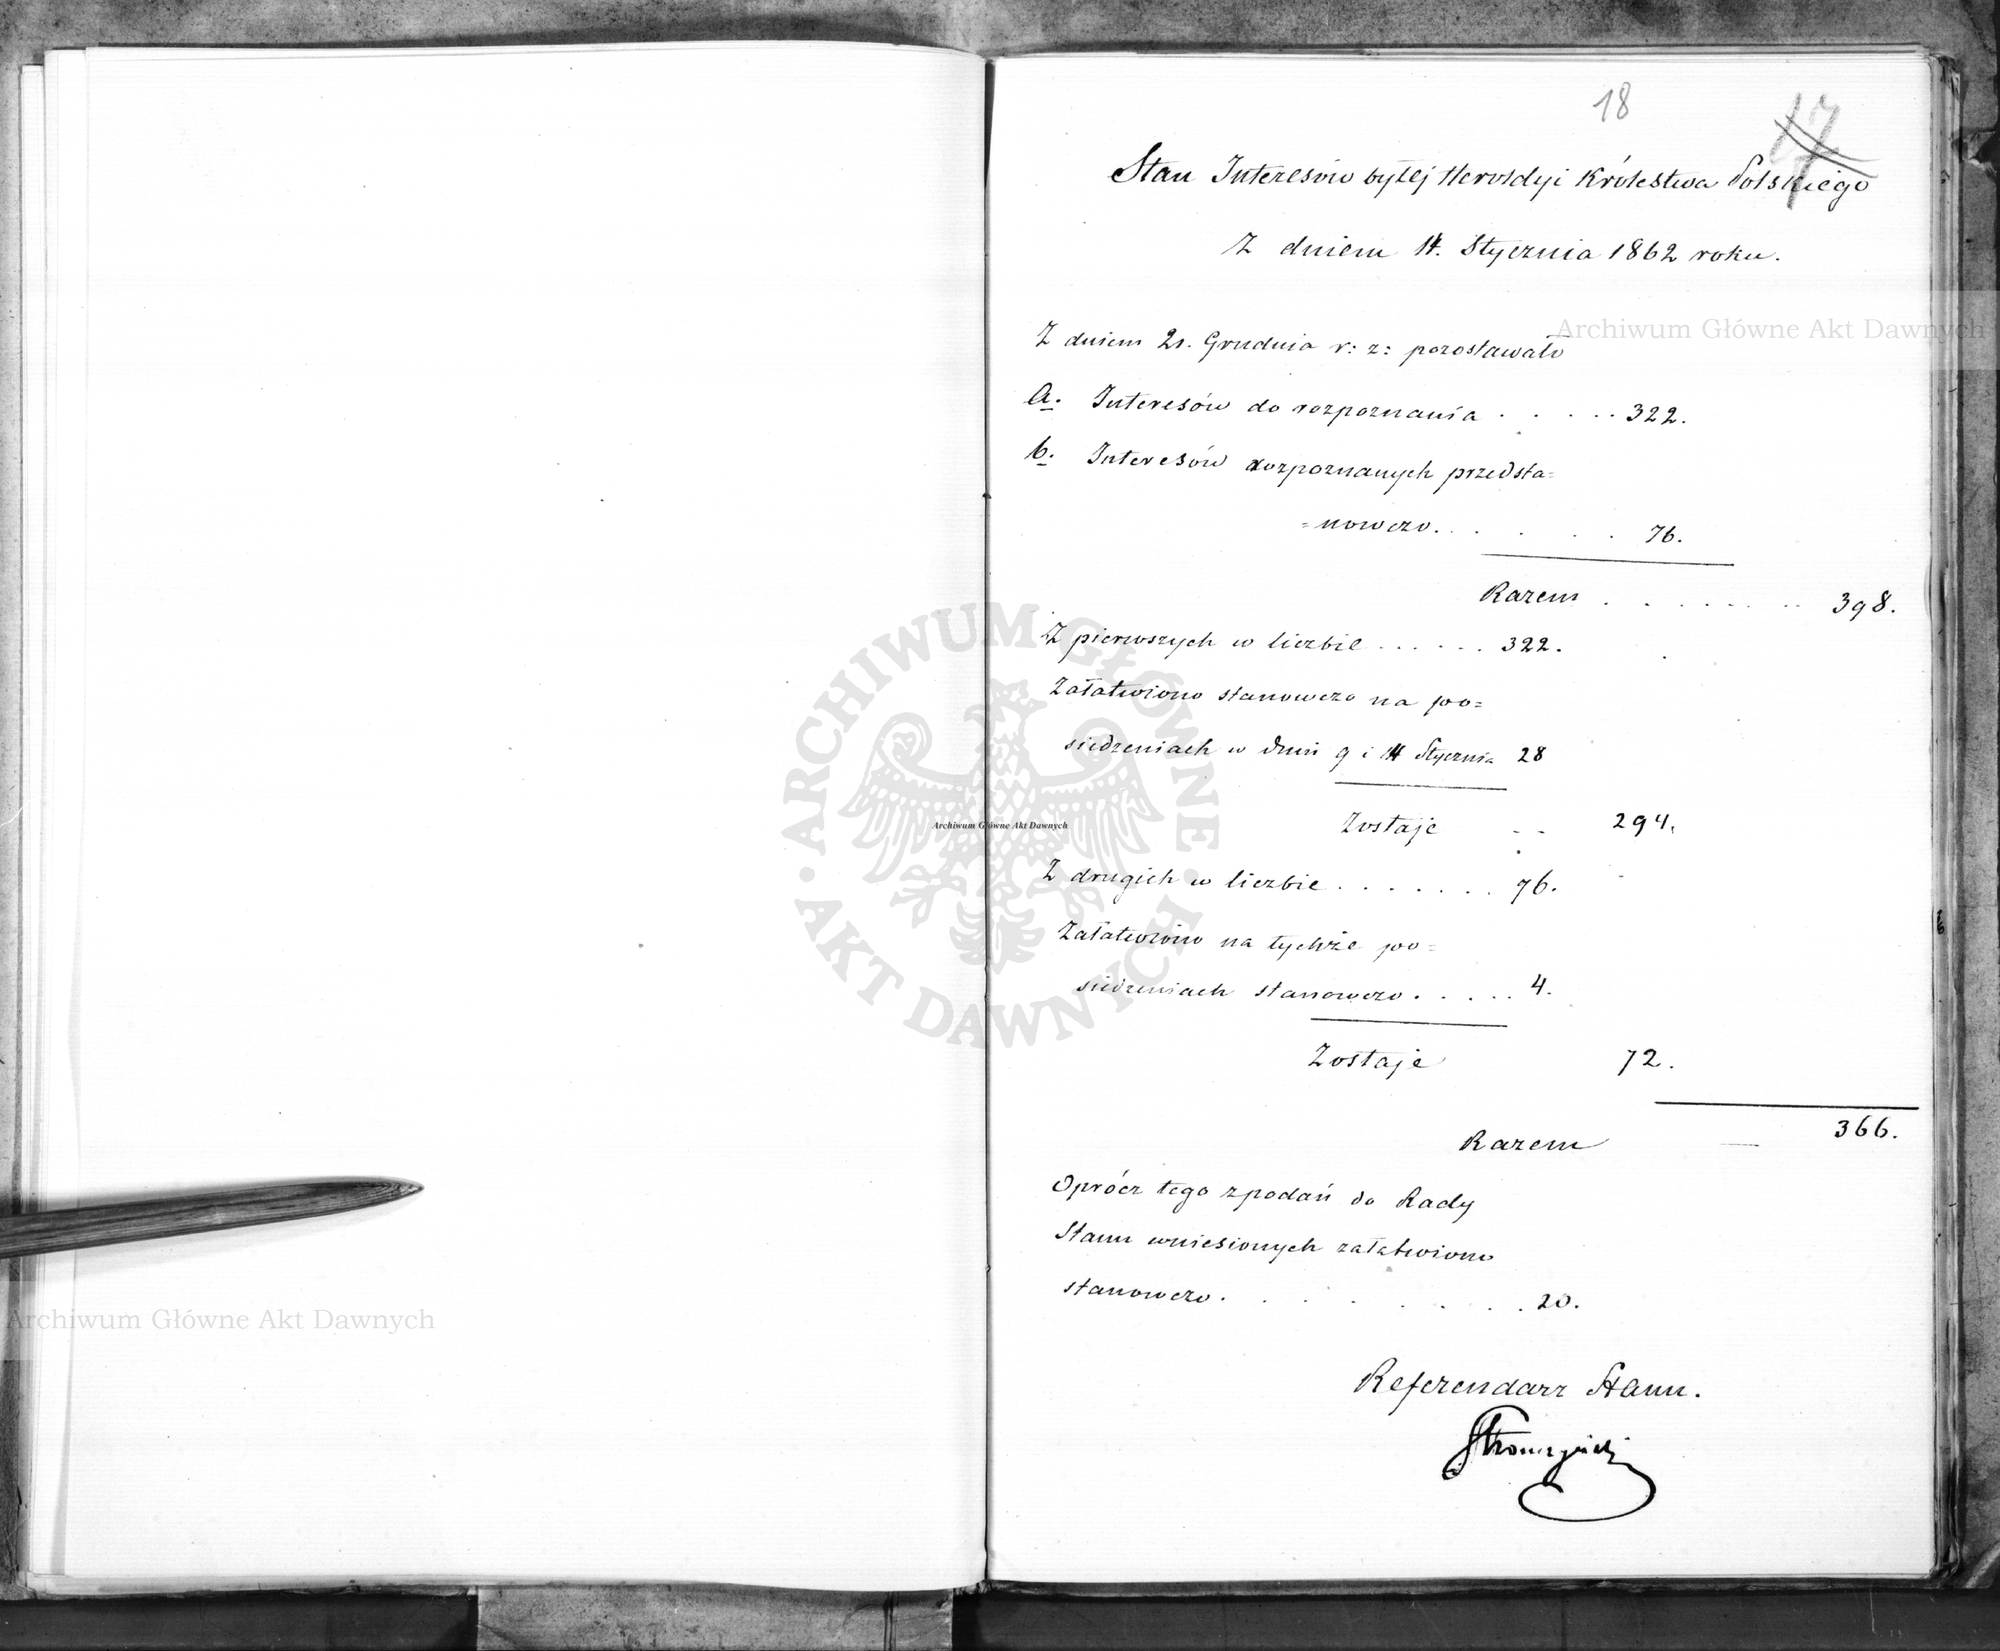 18
17
Stan Interesów byłej Heroldyi Królestwa Polskiego
Z dniem 14. Stycznia 1862 roku.
Z dniem 21. Grudnia r: z: pozostawało
a. Interesów do rozpoznania . . . . . 322.
b. Interesów rozpoznanych przedsta=
=nowczo. . . . . . 76.
Razem . . . . . . . . 398.
Z pierwszych w liczbie . . . . . . 322.
Załatwiono stanowczo na po=
siedzeniach w dniu 9 i 14 Stycznia 28
Zostaje - - 294.
Z drugich w liczbie . . . . . . . 76.
Załatwiono na tychże po=
siedzeniach stanowczo . . . . . 4.
Zostaje 72.
Razem — 366.
Oprócz tego z podań do Rady
Stanu wniesionych załatwiono
stanowczo . . . . . . . 20.
Referendarz Stanu.
Stronczyński
Archiwum Główne Akt Dawnych
ARCHIWUM GŁÓWNE
AKT DAWNYCH
Archiwum Główne Akt Dawnych
Archiwum Główne Akt Dawnych